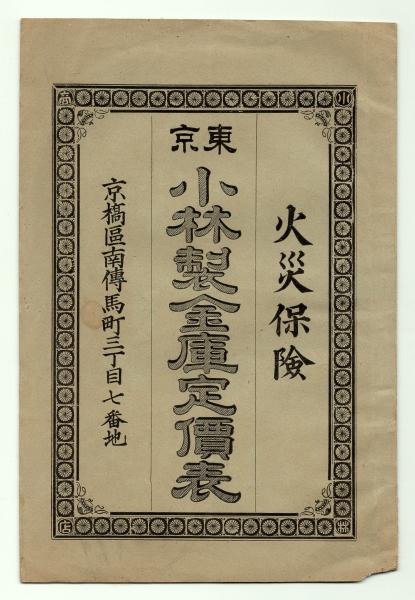 火災保險
東京
小林製金庫定價表
京橋區南傳馬町三丁目七番地
小
林
商
店